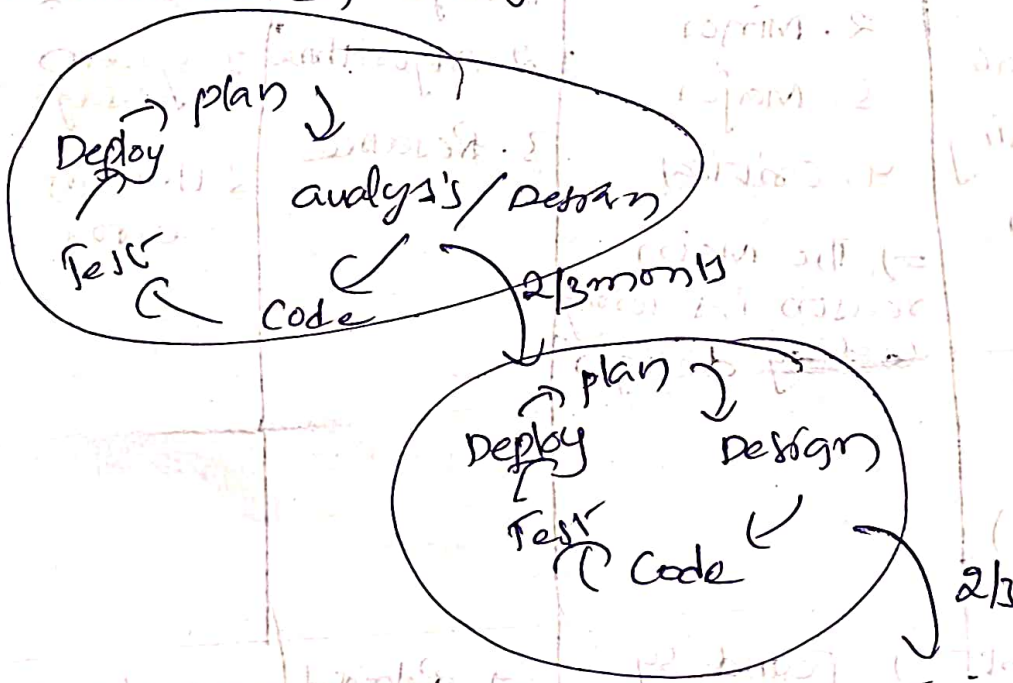 plan
Deploy
analysis / Design
Test
Code
2/3 months
plan
Deploy
Design
Test
Code
2/3